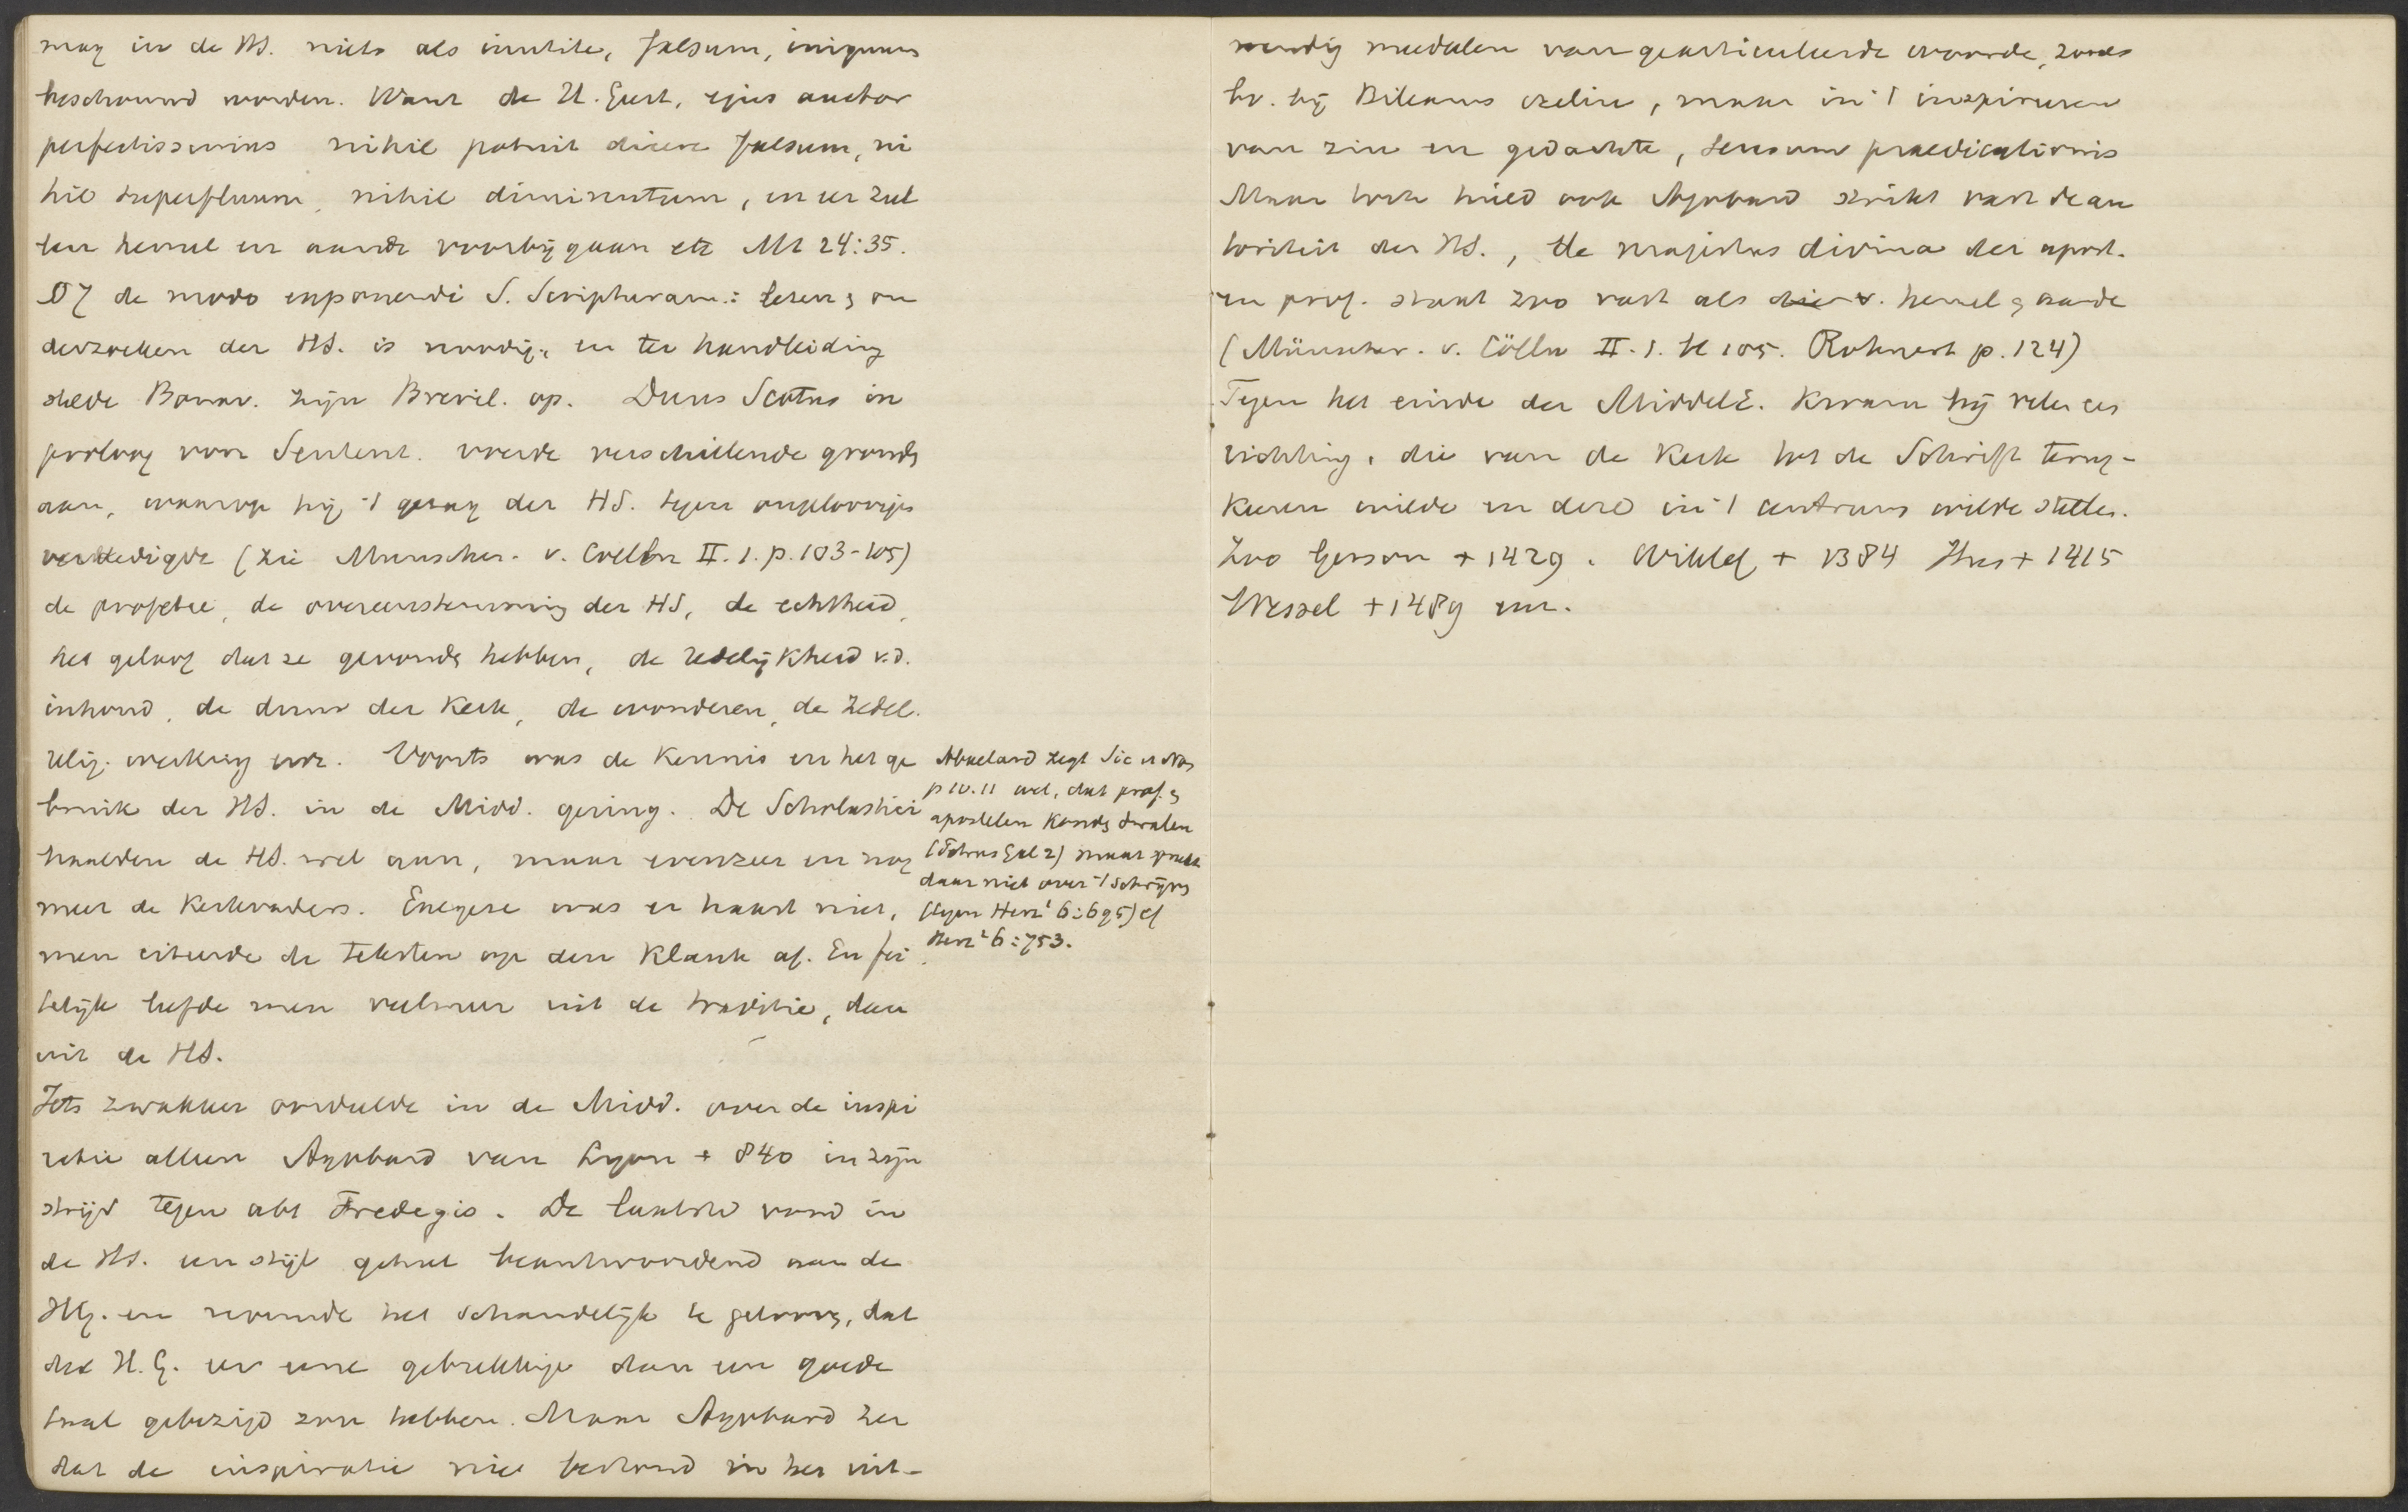 mag in de HS. niets als inutile, falsum, iniquum
beschouwd worden. Want de H. Geest, ejus auctor
perfectissimus nihil potuit dicere falsum, ni
hil superfluum, nihil diminutum, en er zul
len hemel en aarde voorbijgaan etc Mt 24:35.
Of de modo exponendi S. Scripturam: lezen & on
derzoeken der HS. is noodig, en ter handleiding
stelde Bonav. zijn Brevil. op. Duns Scotus in
proloog voor Sentent. voerde verschillende gronds
aan, waarop hij 't gezag der HS. tegen ongeloovige
verdedigde (zie Munscher. v. Coelln II. 1. p. 103-105)
de profetie, de overeenstemming der HS, de echtheid,
het geloof dat ze gevonds hebben, de redelijkheid v.d.
inhoud, de duur der Kerk, de wonderen, de zedel.
relig. werking enz. Voorts was de kennis en het ge
bruik der HS. in de Midd. gering. De Scholastici
haalden de HS. wel aan, maar evenzeer en nog
meer de Kerkvaders. Exegese was er haast niet,
men citeerde de teksten op den klank af. En fei
telijk leefde men veelmeer uit de traditie, dan
uit de HS.
Abaelard zegt Sic et Non
p 10.11 wel, dat prof. &
apostelen konds dwalen
(Petrus Gal 2) maar spreekt
daar niet over 't schrijvs
(tegen Herz¹ 6:695) cf
Herz² 6:753.
Iets zwakker oordeelde in de Midd. over de inspi
ratie alleen Agobard van Lyon + 840 in zijn
strijd tegen abt Fredegis. De laatste vond in
de HS. een stijl geheel beantwoordend aan de
HG. en noemde het schandelijk te geloovs, dat
de H.G. er eene gebrekkige dan een goede
taal gebezigd zou hebben. Maar Agobard zei
dat de inspiratie niet bestond in het uit-
wendig meedelen van gearticuleerde woorde, zooals
bv. bij Bileams ezelin, maar in 't inspireren
van zin en gedachte, sensum praedicationis
Maar toch hield ook Agobard strikt vast de au
toriteit der HS., de majestas divina der apost.
en prof. staat zoo vast als die v. hemel & aarde
(Münscher. v. Cölln II. 1. bl 105. Rohnert p. 124)
Tegen het einde der Middele. kwam bij velen ees
richting, die van de Kerk tot de Schrift terug-
keeren wilde en deze in 't centrum wilde stelles.
Zoo Gerson + 1429. Wiklef + 1384 Hus + 1415
Wessel + 1489 enz.